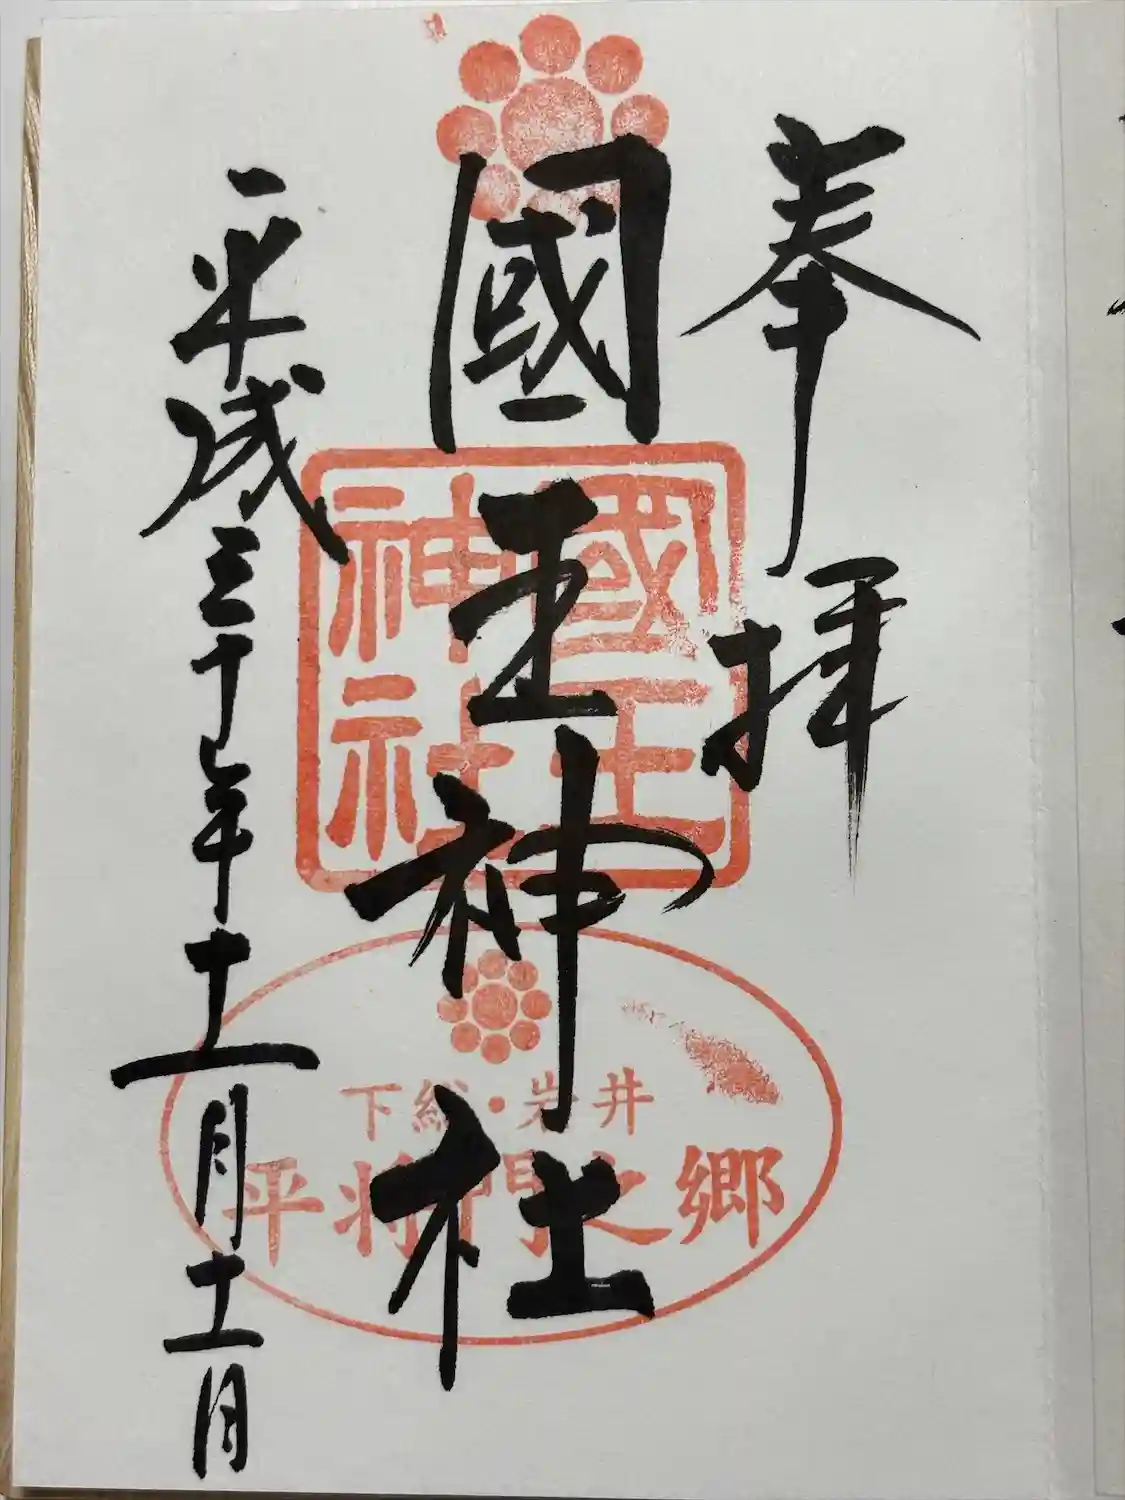 奉拝
國王神社
平成三十年十一月十一日
國王神社
下総・岩井
平将門之郷